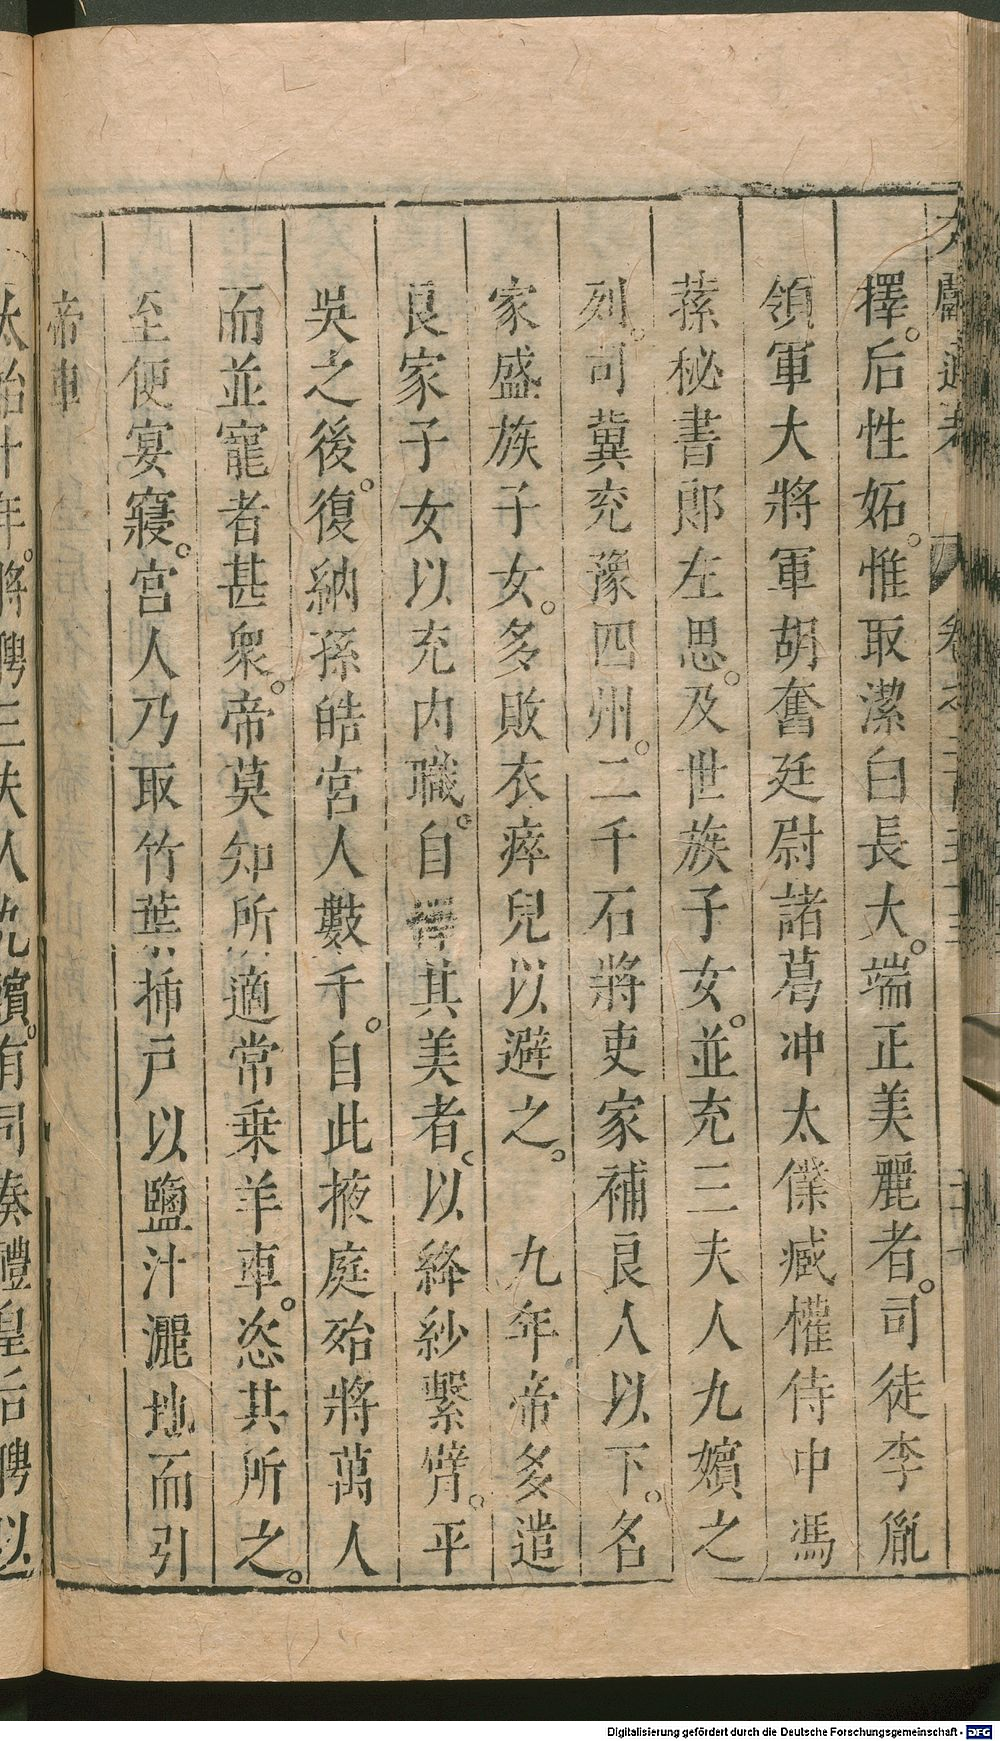 擇。后性妬。惟取潔白長大。端正美麗者。司徒李胤
領軍大將軍胡奮廷尉諸葛冲太僕臧權侍中馮
蓀秘書郎左思。及世族子女。並充三夫人九嬪之
列。司冀兖豫四州。二千石將吏家補良人以下。名
家盛族子女。多敗衣瘁皃以避之。 九年帝多遣
良家子女以充内職。自擇其美者。以絳紗繫臂。平
吳之後。復納孫皓宮人數千。自此掖庭殆將萬人
而並寵者甚衆。帝莫知所適常乗羊車。恣其所之。
至便宴寢。宮人乃取竹葉揷戸以鹽汁灑地而引
帝車
太始十年。將聘三夫人九嬪。有司奏禮皇后聘以
Digitalisierung gefördert durch die Deutsche Forschungsgemeinschaft - DFG